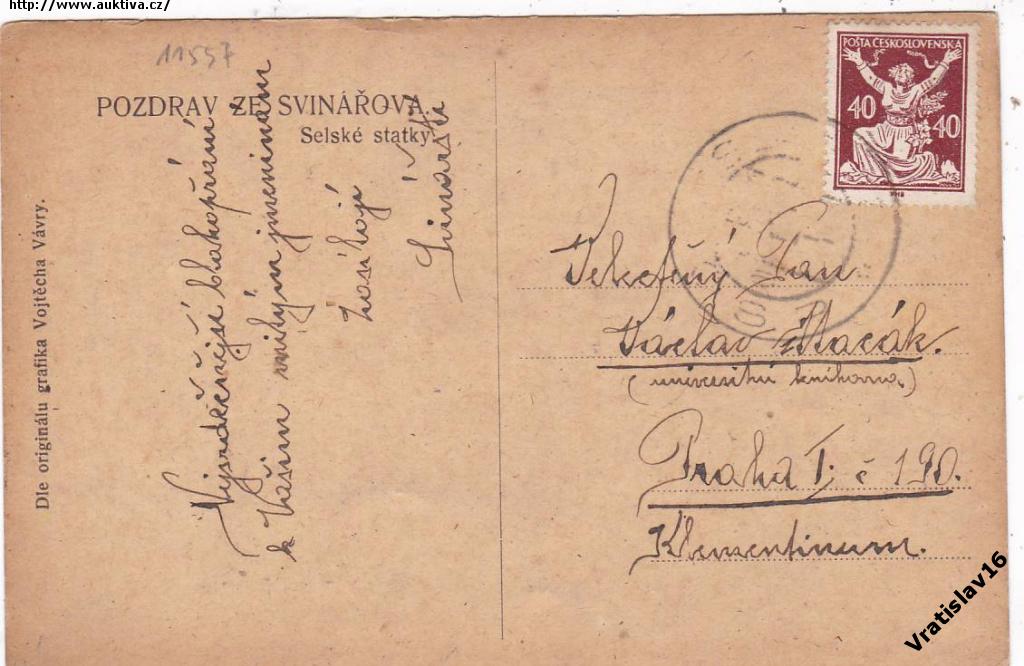 http://www.auktiva.cz/
11557
POZDRAV ZE SVINÁŘOVA.
Selské statky.
Dle originálu grafika Vojtěcha Vávry.
Nejsrdečnější blahopřání
k Vašim milým jmeninám
zasílají
POŠTA ČESKOSLOVENSKÁ
40 40
Velectěný Pan
Václav
(univesitní knihovna)
Praha I, č 190.
Klementinum.
Vratislav16